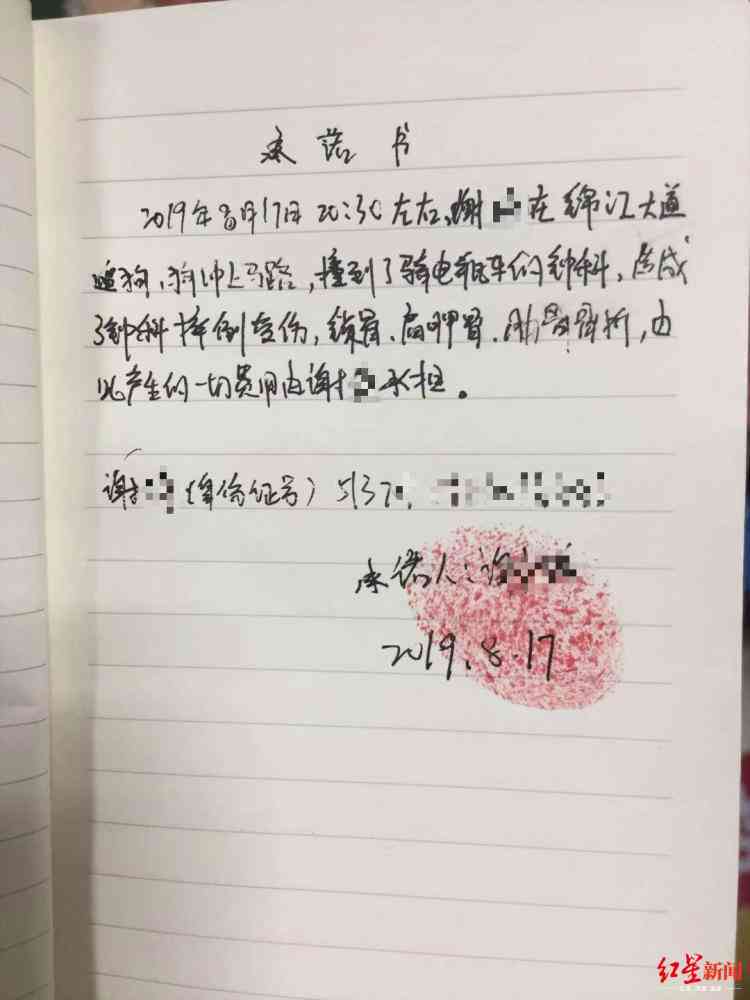 承诺书
2019年8月17日20:30左右,谢在锦江大道
追狗,狗冲上马路,撞到了骑电瓶车的钟科,造成
了钟科摔倒受伤,锁骨、肩胛骨、肋骨骨折,由
此产生的一切费用由谢承担。
谢(身份证号)5137
承诺人:谢
2019.8.17
红星新闻